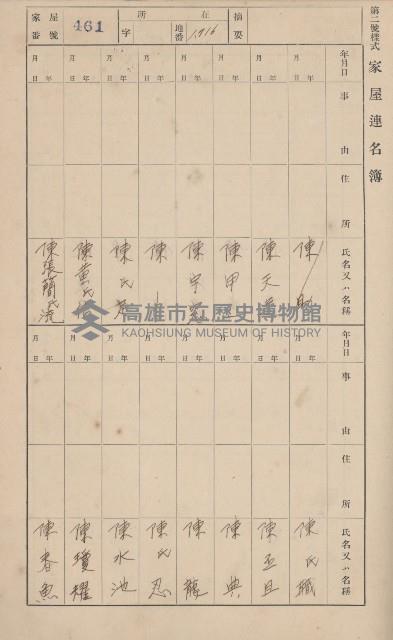 第二號樣式
家屋連名簿
摘要
所在
地番 1916
字
家屋番號 461
年月日
事由
住所
氏名又ハ名稱
年月日
年月日
年月日
年月日
年月日
年月日
年月日
年月日
陳
陳天
陳甲
陳宇
陳
陳氏
陳黃氏
陳張簡氏流
高雄市立歷史博物館
KAOHSIUNG MUSEUM OF HISTORY
年月日
事由
住所
氏名又ハ名稱
年月日
年月日
年月日
年月日
年月日
年月日
年月日
年月日
陳氏
陳丕旦
陳典
陳
陳氏忍
陳水池
陳瓊耀
陳香魚